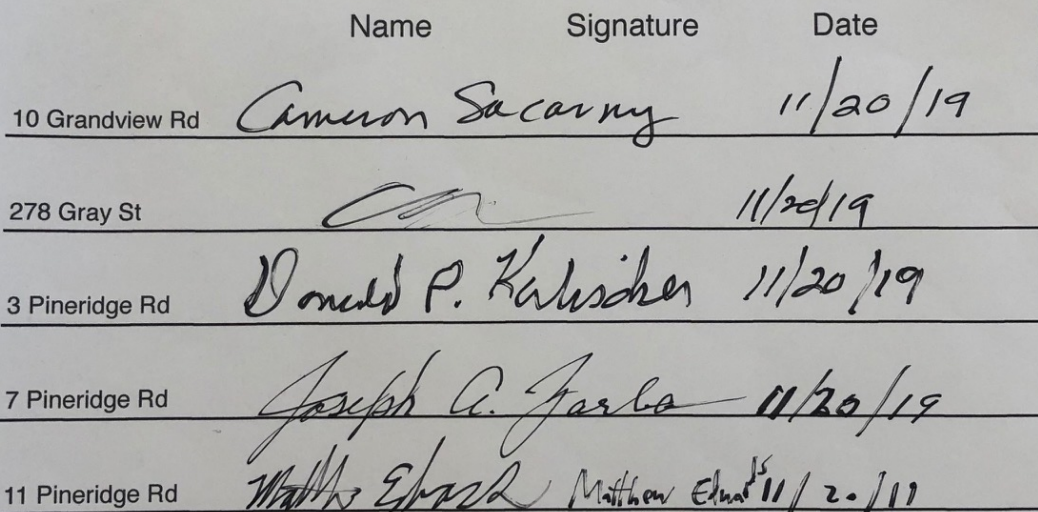 Name Signature Date
10 Grandview Rd Cameron Sacarny 11/20/19
278 Gray St 11/20/19
3 Pineridge Rd Donald P. 11/20/19
7 Pineridge Rd Joseph A. 11/20/19
11 Pineridge Rd Matthew Edwards 11/20/19